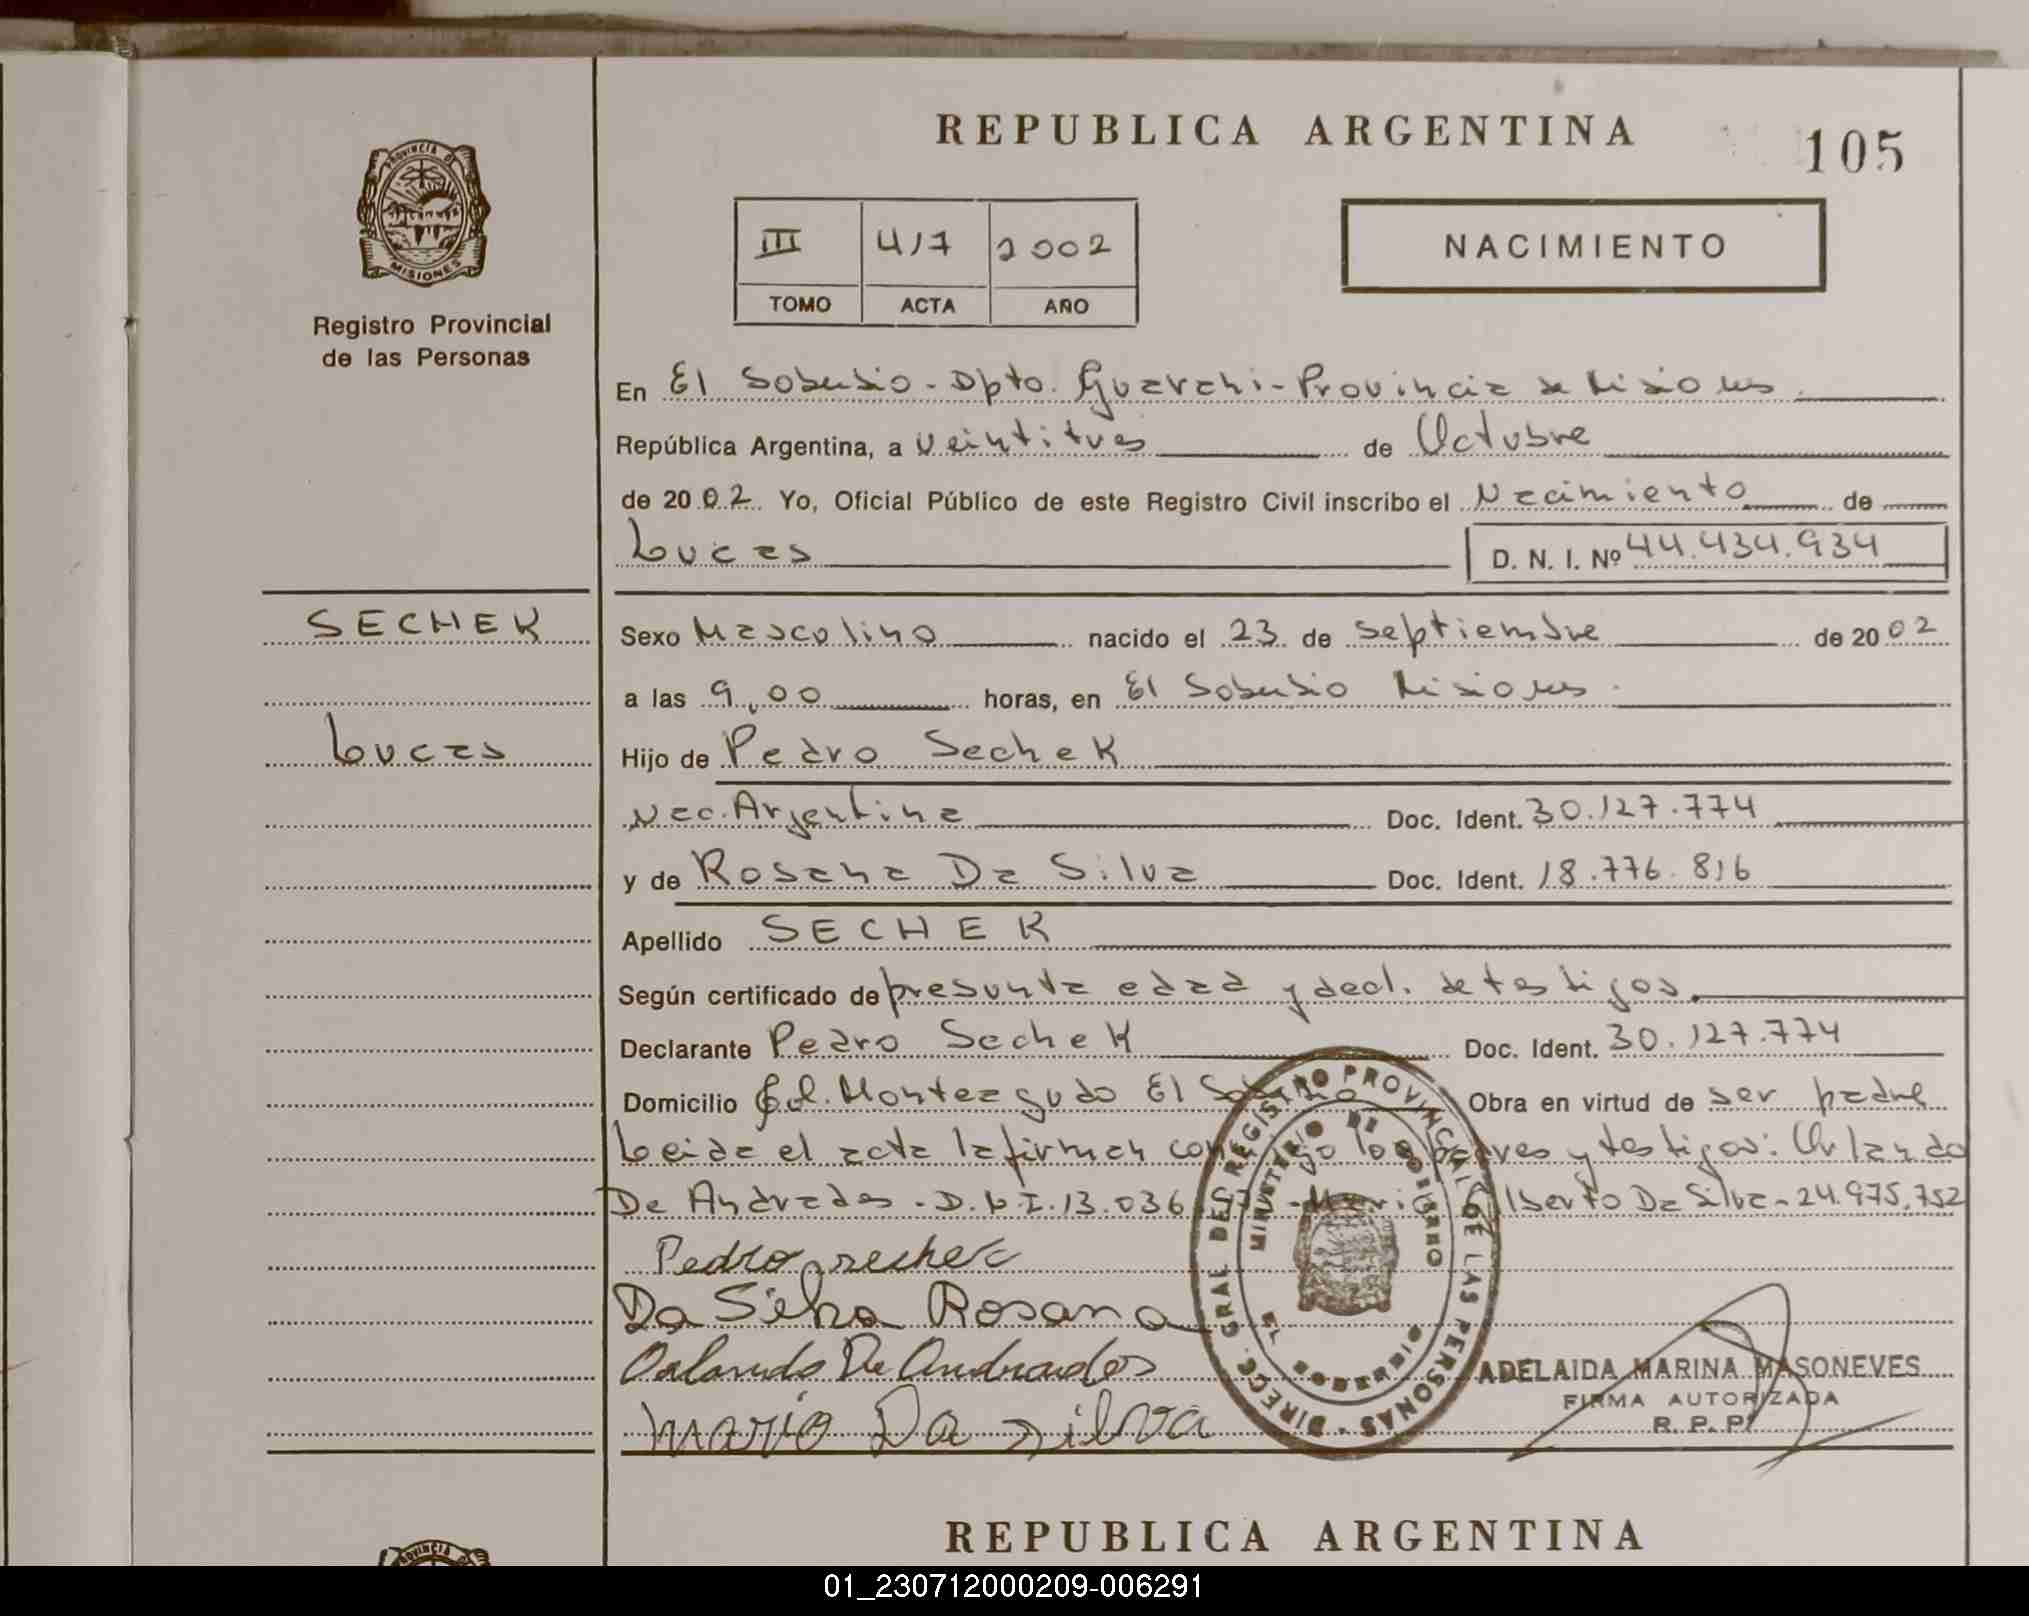 REPUBLICA ARGENTINA
105
PROVINCIA DE
MISIONES
Registro Provincial
de las Personas
III 417 2002
TOMO ACTA AÑO
NACIMIENTO
En El Soberbio - Dpto. Guarani - Provincia de Misiones
República Argentina, a veintitres de Octubre
de 2002 Yo, Oficial Público de este Registro Civil inscribo el Nacimiento de
Lucas D. N. I. Nº 44.434.934
SECHEK
Lucas
Sexo Mascolino nacido el 23 de Septiembre de 2002
a las 9,00 horas, en El Soberbio Misiones.
Hijo de Pedro Sechek
Nac. Argentina Doc. Ident. 30.127.774
y de Rosana Da Silva Doc. Ident. 18.776.816
Apellido SECHEK
Según certificado de presunta edad y decl. de testigos.
Declarante Pedro Sechek Doc. Ident. 30.127.774
Domicilio Col. Monteagudo El Obra en virtud de ser padre
Leida el acta la firman los y testigos: Orlando
De Andrades - D.N.I. 13.036 Alberto Da Silva - 24.975.752
Pedro sechek
Da Silva Rosana
Orlando De Andrades
Mario Da Silva
DIREC. GRAL DEL REGISTRO PROVINCIAL DE LAS PERSONAS
MINISTERIO DE GOBIERNO
EL SOBERBIO
ADELAIDA MARINA MASONEVES
FIRMA AUTORIZADA
R. P. P.
PROVINCIA DE
REPUBLICA ARGENTINA
01_230712000209-006291